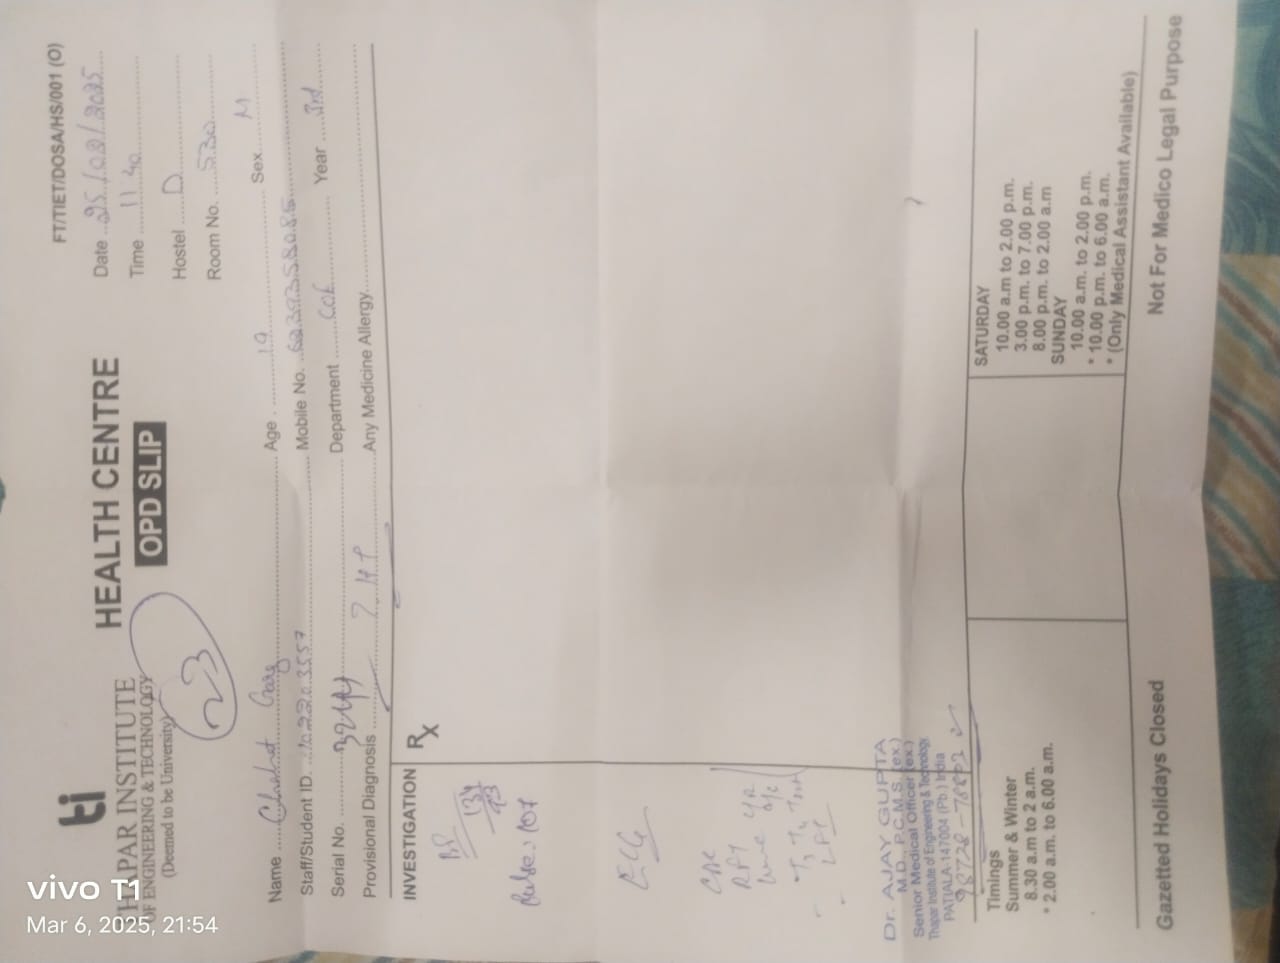 FT/TIET/DOSA/HS/001 (O)
ti
THAPAR INSTITUTE
OF ENGINEERING & TECHNOLOGY
(Deemed to be University)
HEALTH CENTRE
OPD SLIP
23
Date 25/02/2025
Time 11 40
Hostel D
Room No. 530
Name Garg Age 19 Sex M
Staff/Student ID Mobile No.
Serial No. 3244 Department COE Year 3rd
Provisional Diagnosis Any Medicine Allergy
INVESTIGATION
Rx
BP
134
93
Pulse 107
ECG
CBC
RFT
LFT
Dr. AJAY GUPTA
M.D., P.C.M.S. (ex.)
Senior Medical Officer (ex.)
Thapar Institute of Engineering & Technology
PATIALA-147004 (Pb.) India
Timings
Summer & Winter
8.30 a.m to 2 a.m.
* 2.00 a.m. to 6.00 a.m.
SATURDAY
10.00 a.m to 2.00 p.m.
3.00 p.m. to 7.00 p.m.
8.00 p.m. to 2.00 a.m
SUNDAY
10.00 a.m. to 2.00 p.m.
* 10.00 p.m. to 6.00 a.m.
* (Only Medical Assistant Available)
Gazetted Holidays Closed
Not For Medico Legal Purpose
vivo T1
Mar 6, 2025, 21:54